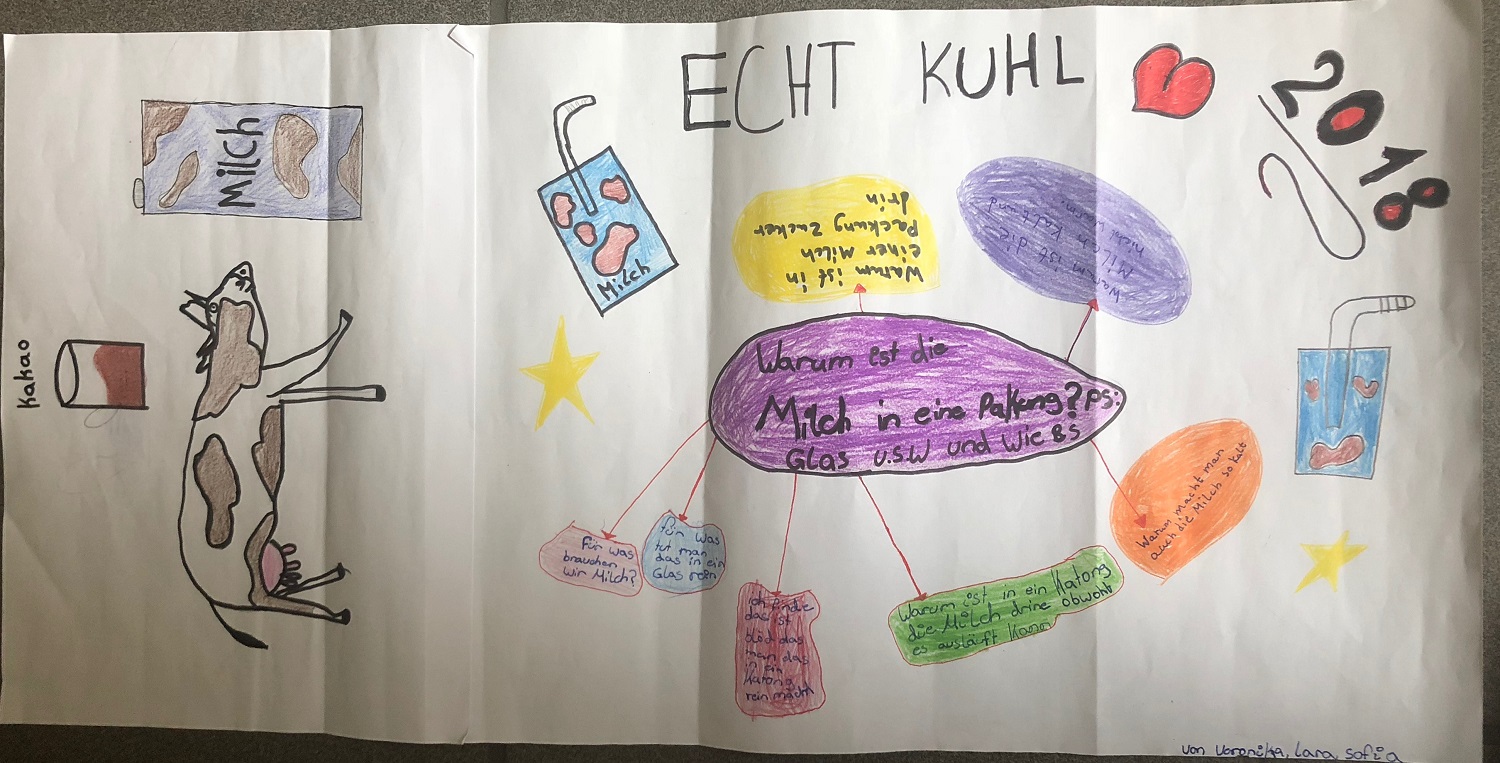 ECHT KUHL
2018
Milch
Kakao
Milch
Warum ist in
einer Milch
Packung Zucker
drin
Warum ist die
Milch Kalt und
nicht warm.
Warum ist die
Milch in eine Pakung? PS:
Glas u.s.w und wie
Warum macht man
auch die Milch so kalt
Für was
brauchen
wir Milch?
für was
tut man
das in ein
Glas rein
ich finde
das ist
blöd das
man das
in ein
Katong
rein macht
Warum ist in ein Katong
die Milch drine obwohl
es ausläuft Kann
von Veronika, Lara, Sofia